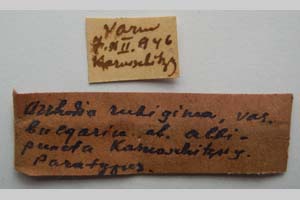 Varna
7. XII. 946
Karnoschitzky
Orrhodia rubiginea, var.
bulgarica ab. albi-
puncta Karnoschitzky.
Paratypus.